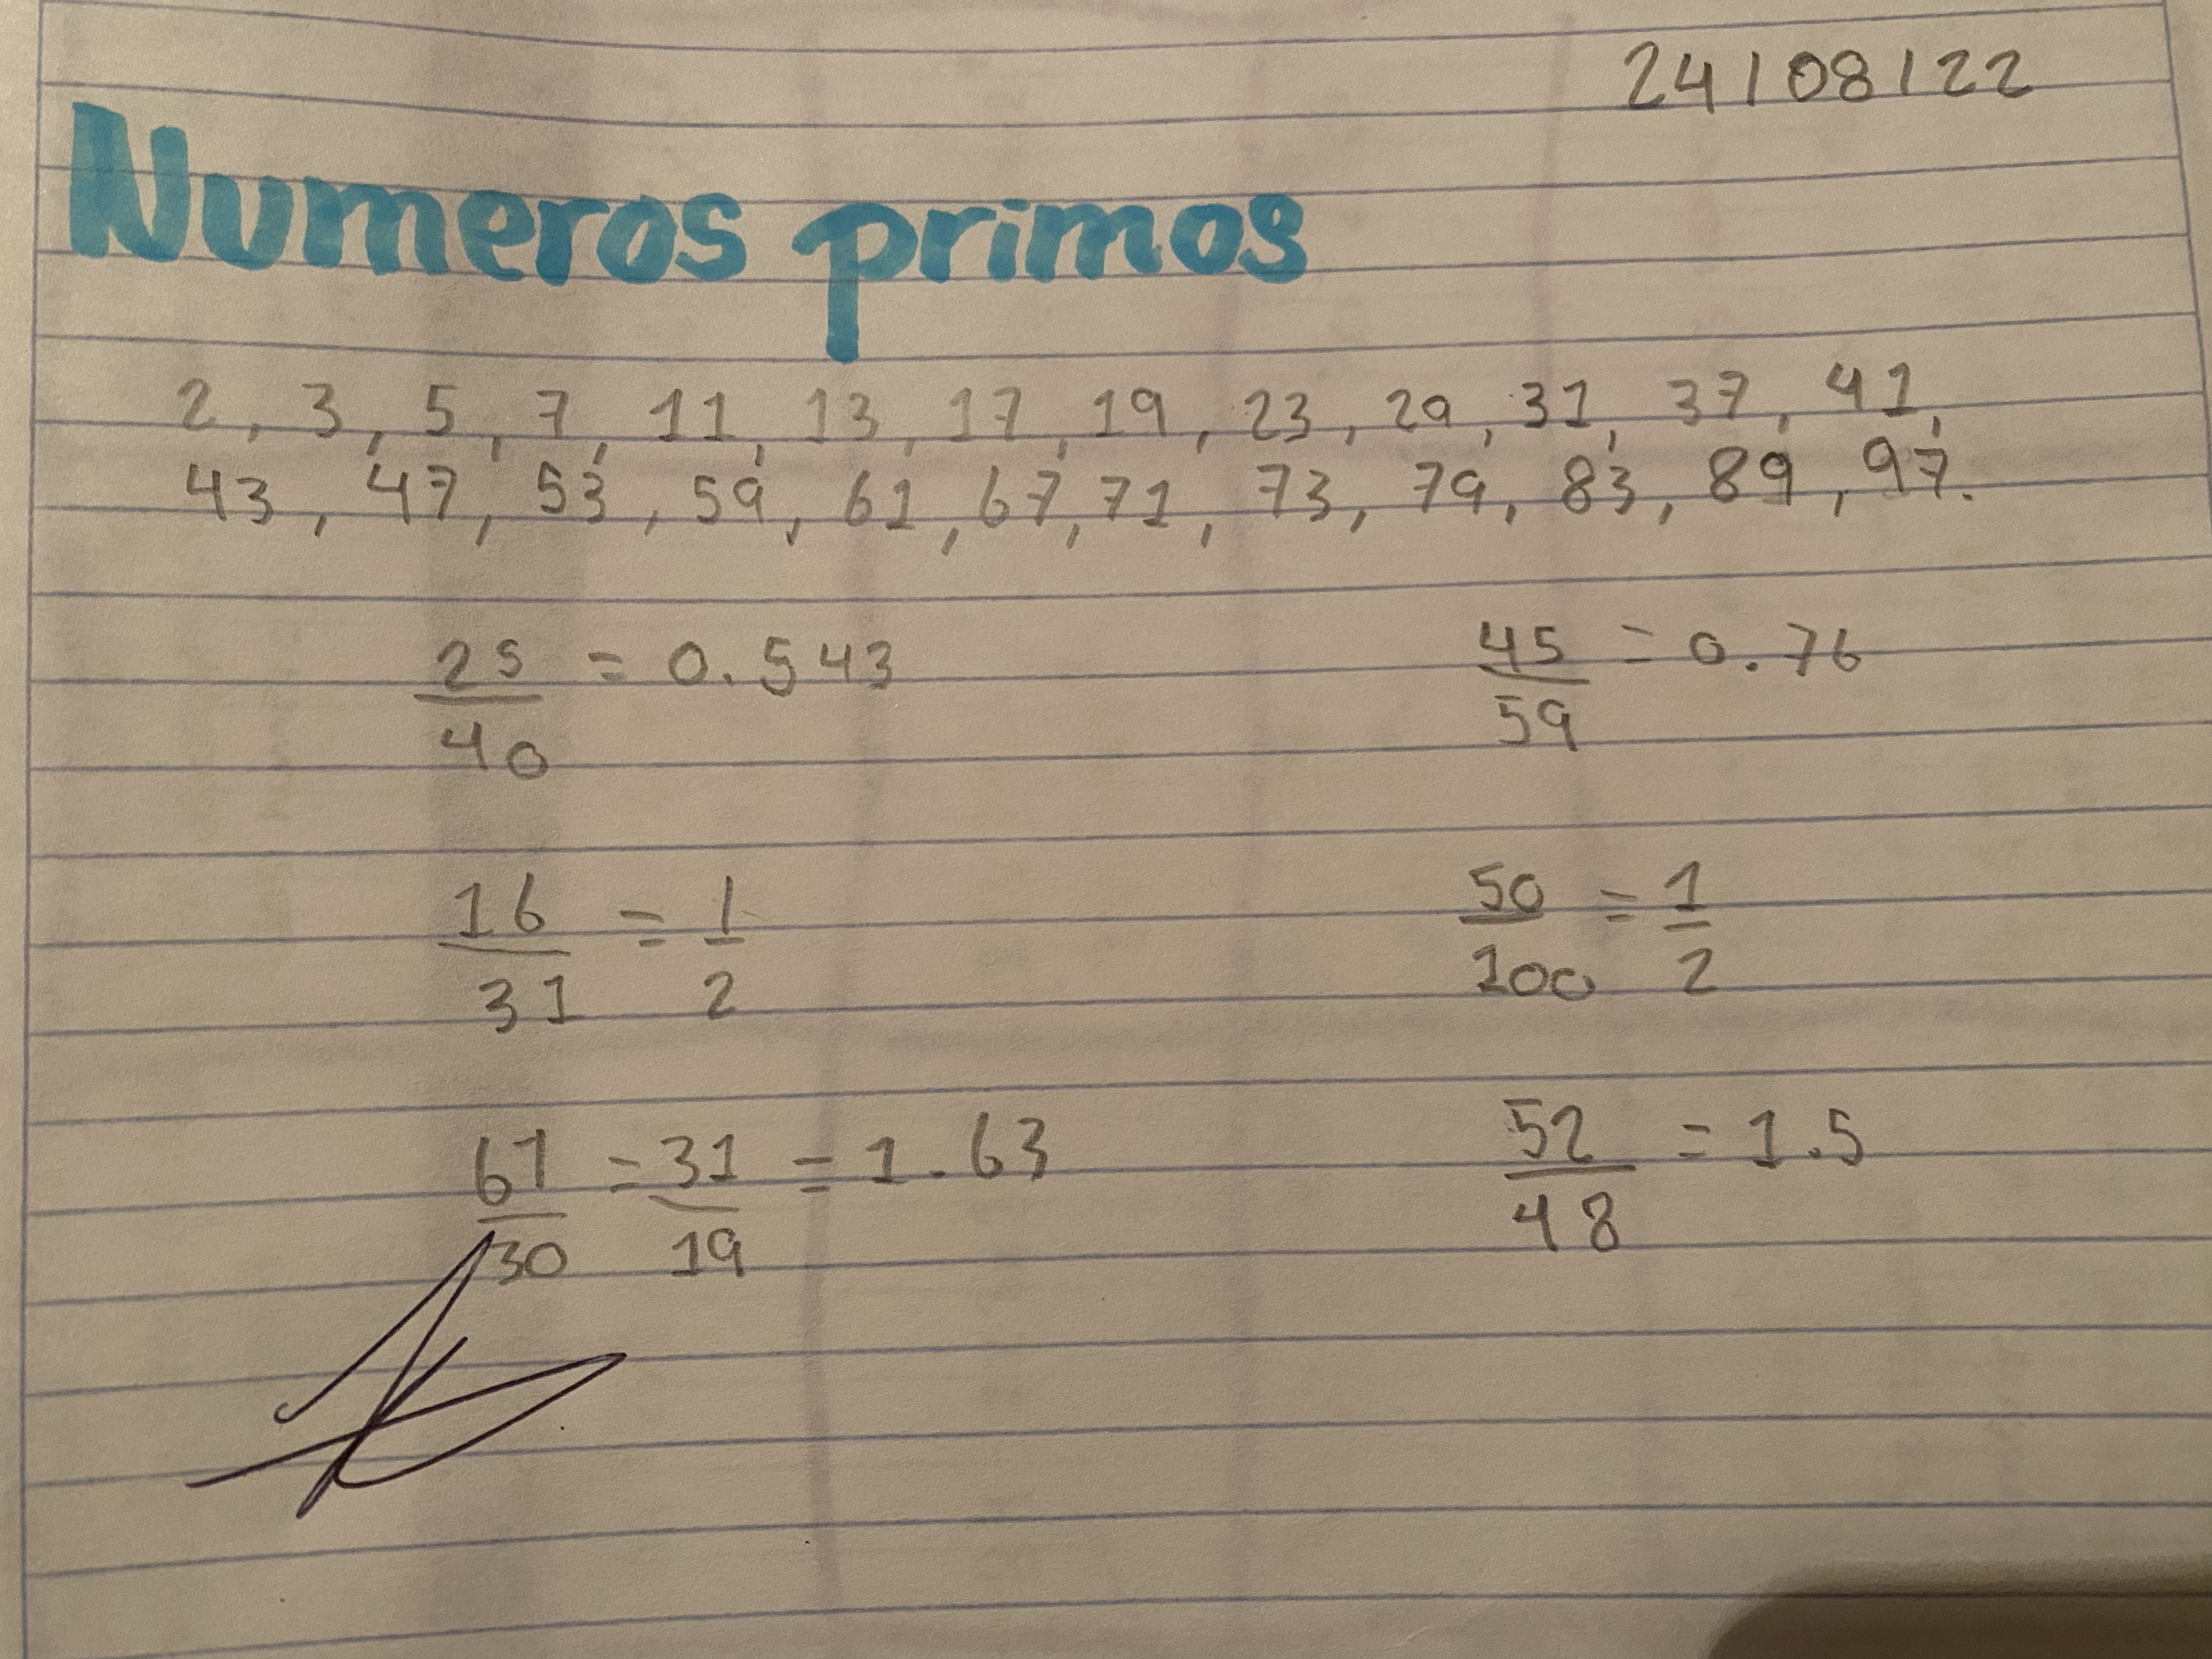 24/08/22
Numeros primos
2, 3, 5, 7, 11, 13, 17, 19, 23, 29, 31, 37, 41,
43, 47, 53, 59, 61, 67, 71, 73, 79, 83, 89, 97.
25/40 = 0.543
45/59 = 0.76
16/31 = 1/2
50/100 = 1/2
61/30 = 31/19 = 1.63
52/48 = 1.5